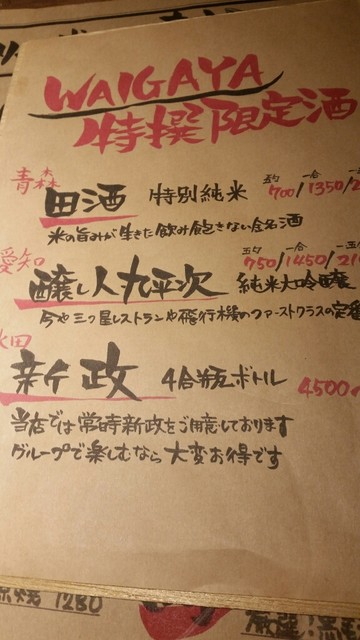 WAIGAYA
特撰限定酒
青森 五勺 一合
田酒 特別純米 700/1350/2
米の旨みが生きた飲み飽きない銘酒
愛知 五勺 一合
醸し人九平次 純米大吟醸 750/1450/21
今や三ツ星レストランや飛行機のファーストクラスの定番
秋田
新政 4合瓶ボトル 4500
当店では常時新政をご用意しております
グループで楽しむなら大変お得です
1280
厳選!黒